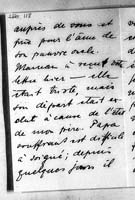 auprès de vous et
prié pour l'âme de
son pauvre oncle.
Maman a reçu votre
lettre hier — elle
était triste, mais
son départ était
à cause de l'état
de mon père. Papa
souffrant est difficile
à soigner ; depuis
quelques jours il